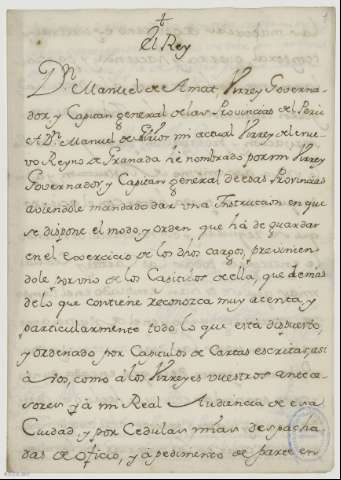 El Rey
Dn. Manuel de Amat, Virrey Governa-
dor, y Capitan general de las Provincias del Perù
A Dn. Manuel de Guirior mi actual Virrey del nue-
vo Reyno de Granada hè nombrado por mi Virrey
Governador, y Capitan general de esas Provincias
aviendole mandado dar una Instruccion en que
se dispone el modo, y orden que hà de guardar
en el Exercicio de los dhos cargos, previnien-
dole por uno de los Capitulos de ella, que demas
de lo que contiene reconozca muy atenta, y
particularmente todo lo que està dispuesto,
y ordenado por Capitulos de Cartas escritas, asi
à Vos, como à los Virreyes vuestros antece-
sores, y à mi Real Audiencia de esa
Ciudad, y por Cedulas mias despacha-
das de Oficio, y à pedimento de parte en